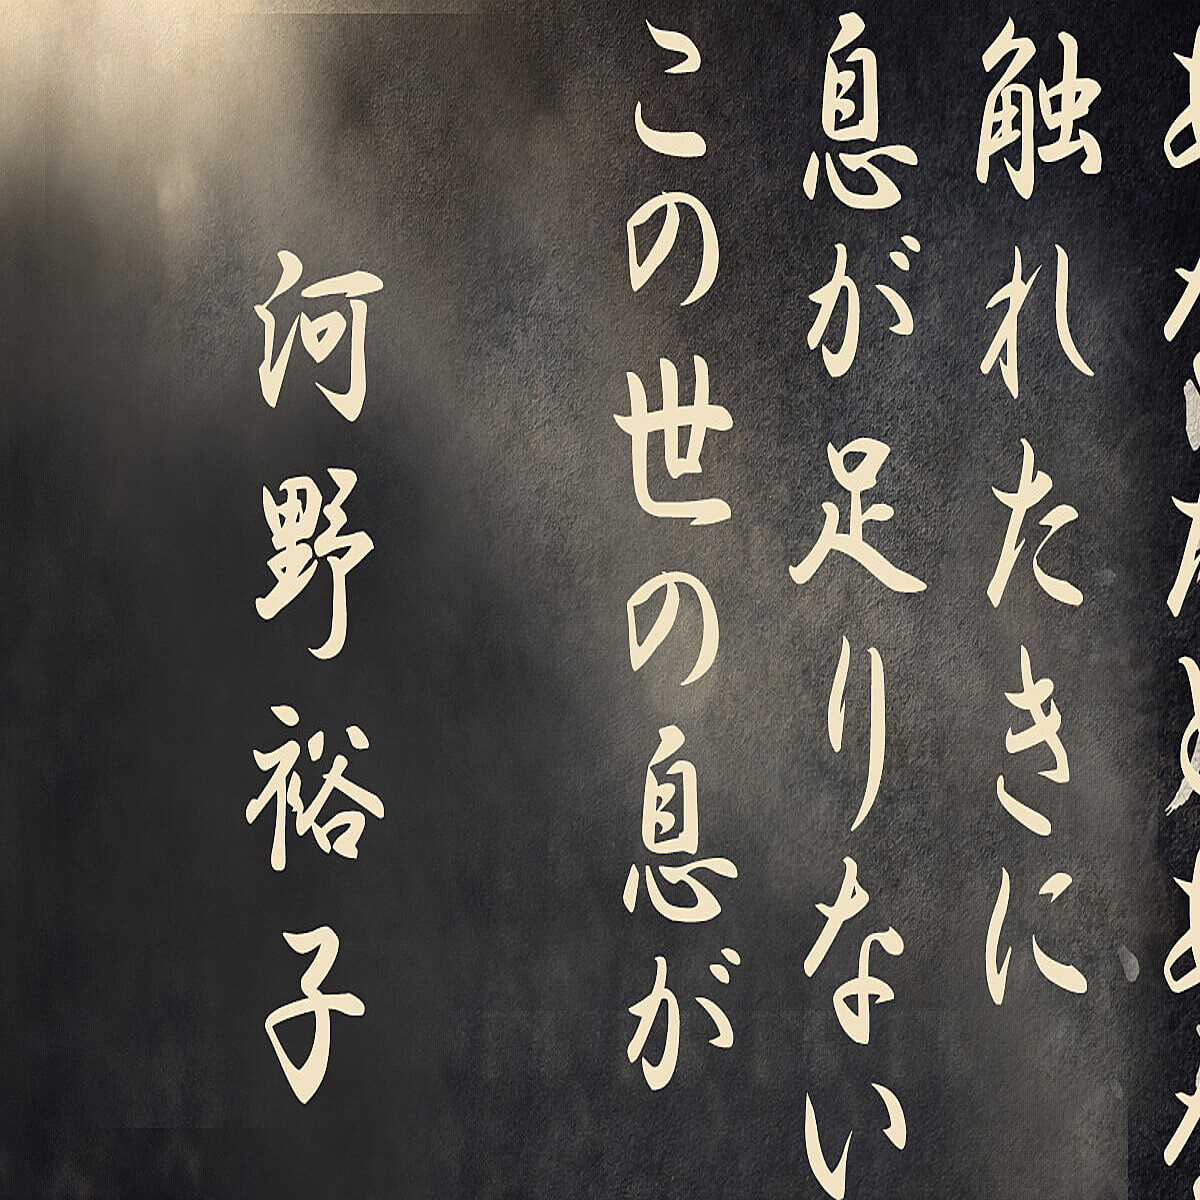 触れたきに
息が足りない
この世の息が
河野裕子